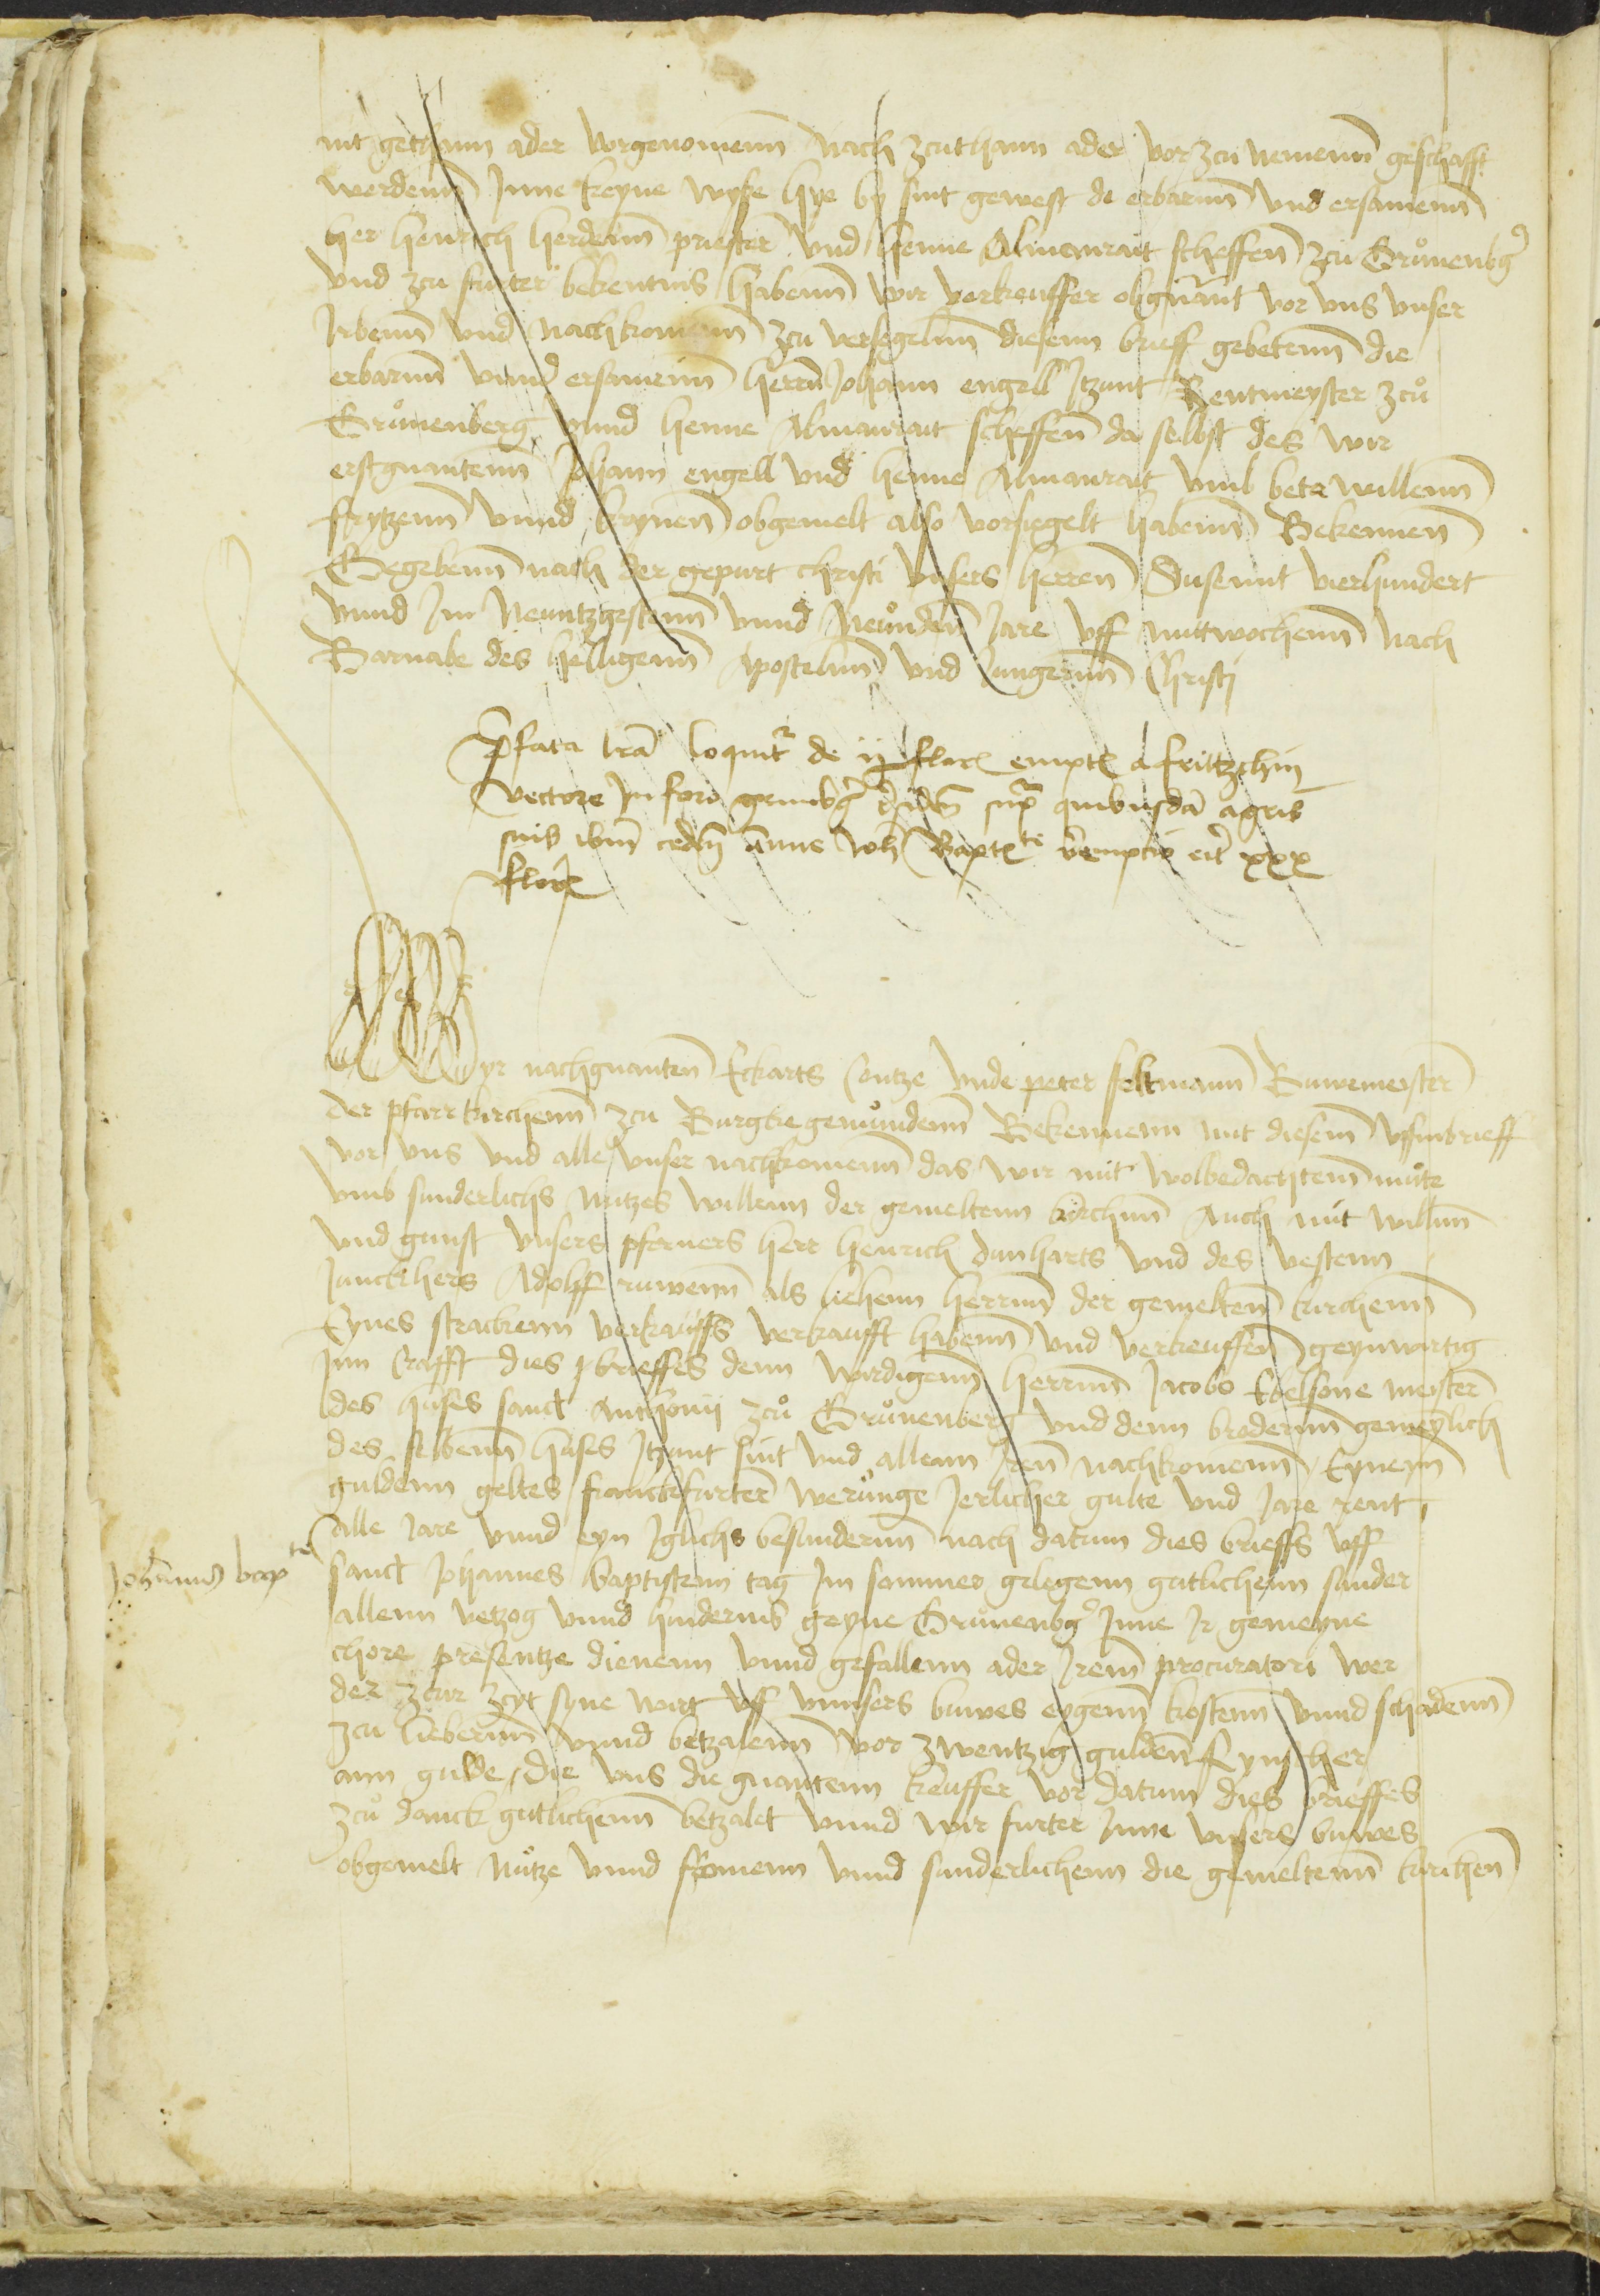 nit gethann ader vorgenomenn nach zcuthann ader vor zcu nemenn geschafft
werdenn Inne keyne wyse hye by sint gewest de erbarnn vnd ersamenn
her henrich herdenn priester vnd henne Almanrait scheffen zcu Grůnenbg
vnd zcu furter bekentnis habenn wir verkeuffer obgnant vor vns vnser
Irbenn vnd nachkomenn zcu versegelnn diesenn brieff gebetenn die
erbarnn vnnd ersamenn herrn Johann engell Itzunt Rentmeyster zců
Grůnenberg vnnd henne Almanrait scheffen da selbst des wir
erstgnantenn Johann engell vnd henne Almanrait vmb bete willenn
frytzenn vnnd krynen obgemelt also vorsiegelt habenn Bekennen
Gegebenn nach der gepurt christi vnsers herren Dusennt vierhundert
vnnd Im Neuntzgestenn vnnd Neůnden Jare vff mitwochenn nach
Barnabe des heiligenn Apostelnn vnd Jungernn Christi
Pfata lra loquit de ij flor empt a frittzchin
vectore In foro grunbg ibidem sup quibusda agris
suis ibm ceden annue Joh Bapt te reempcio eit xxx
flor
Wyr nachgnanten Eckarts Contze vnde peter feltmann Buwemeister
der pfarrkirchenn zcu Burgkegemůndenn Bekennenn mit diesem vffinbrieff
vor vns vnd alle vnser nachkomenn das wir mit wolbedachtem můte
vmb sunderlichs Nutzes willenn der gemeltenn kirchnn Auch mit willnn
vnd gunst vnsers pferners herr henrich danharts vnd des vestenn
Junckhers Adolff ruwenn als liehenn herrnn der gemelten kirchenn
Eynes strackenn verkauffs verkaufft habenn vnd verkeuffen geynwirtig
Inn Crafft dies brieffes denn wirdigenn herrnn Jacobo Ebelsone meister
des huses sanct Anthonij zců Grůnenberg vnd denn brodernn gemeynlich
des selbenn huses Itzunt sint vnd allenn Iren nachkomenn Eyneyn
guldenn geltes franckfurter werůnge Jerlicher gulte vnd Jare rent
alle Jare vnnd eyn Iglichs besundernn nach datum dies brieffs vff
Johannis bap te
sanct Johannes baptistenn tag Im sommer gelegenn gutlichenn sunder
allenn vetzog vnnd hindernis geyne Grůnenbg Inne Ir gemeyne
chore presentze dienenn vnnd gefallenn ader Irem procuratori wer
der zcur zcyt syne wirt vff vnnsers buwes eygenn kostenn vnnd schadenn
zcu lieberinn vnnd betzalenn vor zwentzig gulden Rynscher
ann gulde, die vns die gnantenn keuffer vor datum dies brieffes
zců danck gutlichenn betzalt vnnd wir furter Inne vnsers buwes
obgemelt Nůtze vnnd fromenn vnnd sunderlichenn die gemeltenn kirchen